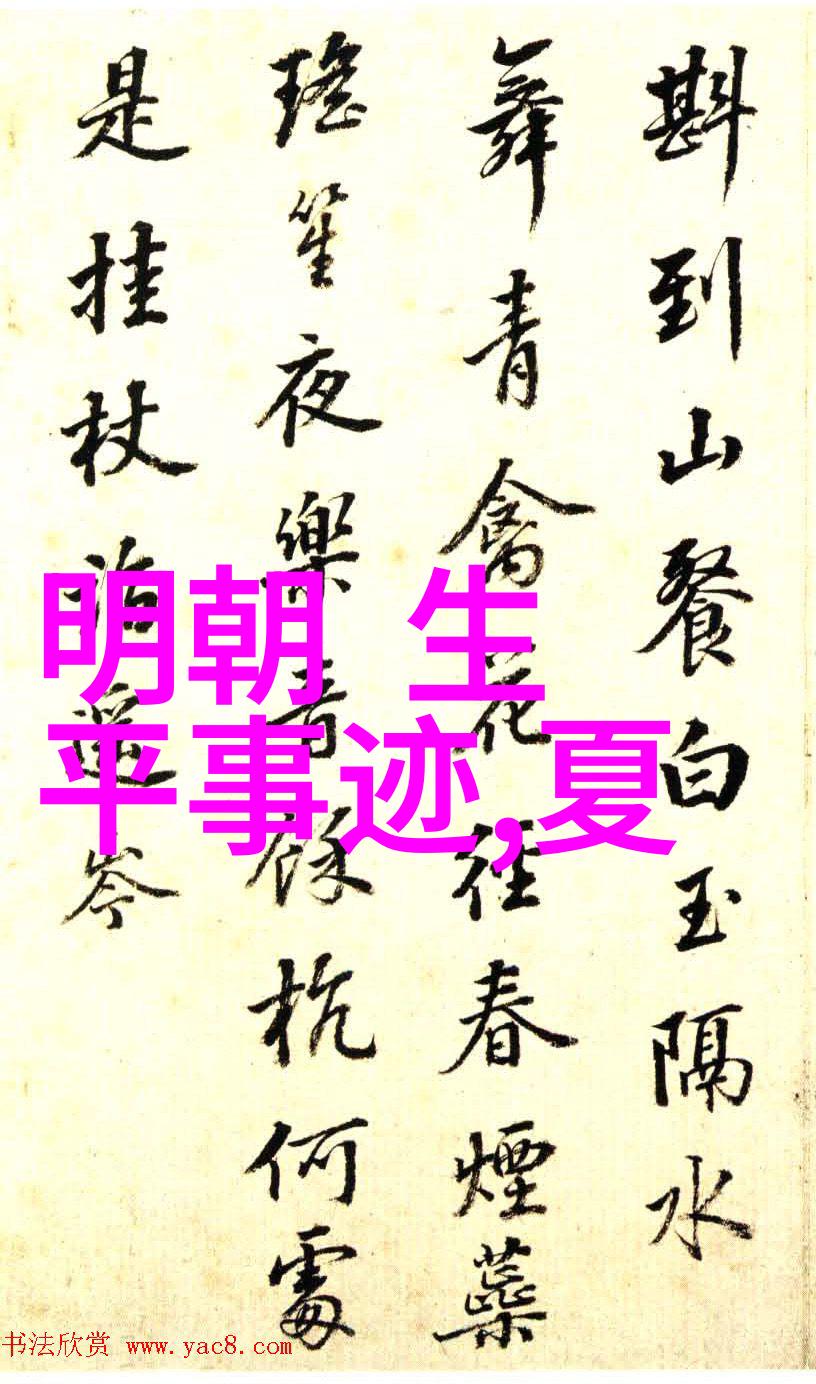 斟到山餐白玉隔水
舞青禽花徑春煙蘂
瑤笙夜樂音餘杭何處
是挂杖遥岑
明朝 生
平事迹,夏
书法欣赏 www.yac8.com